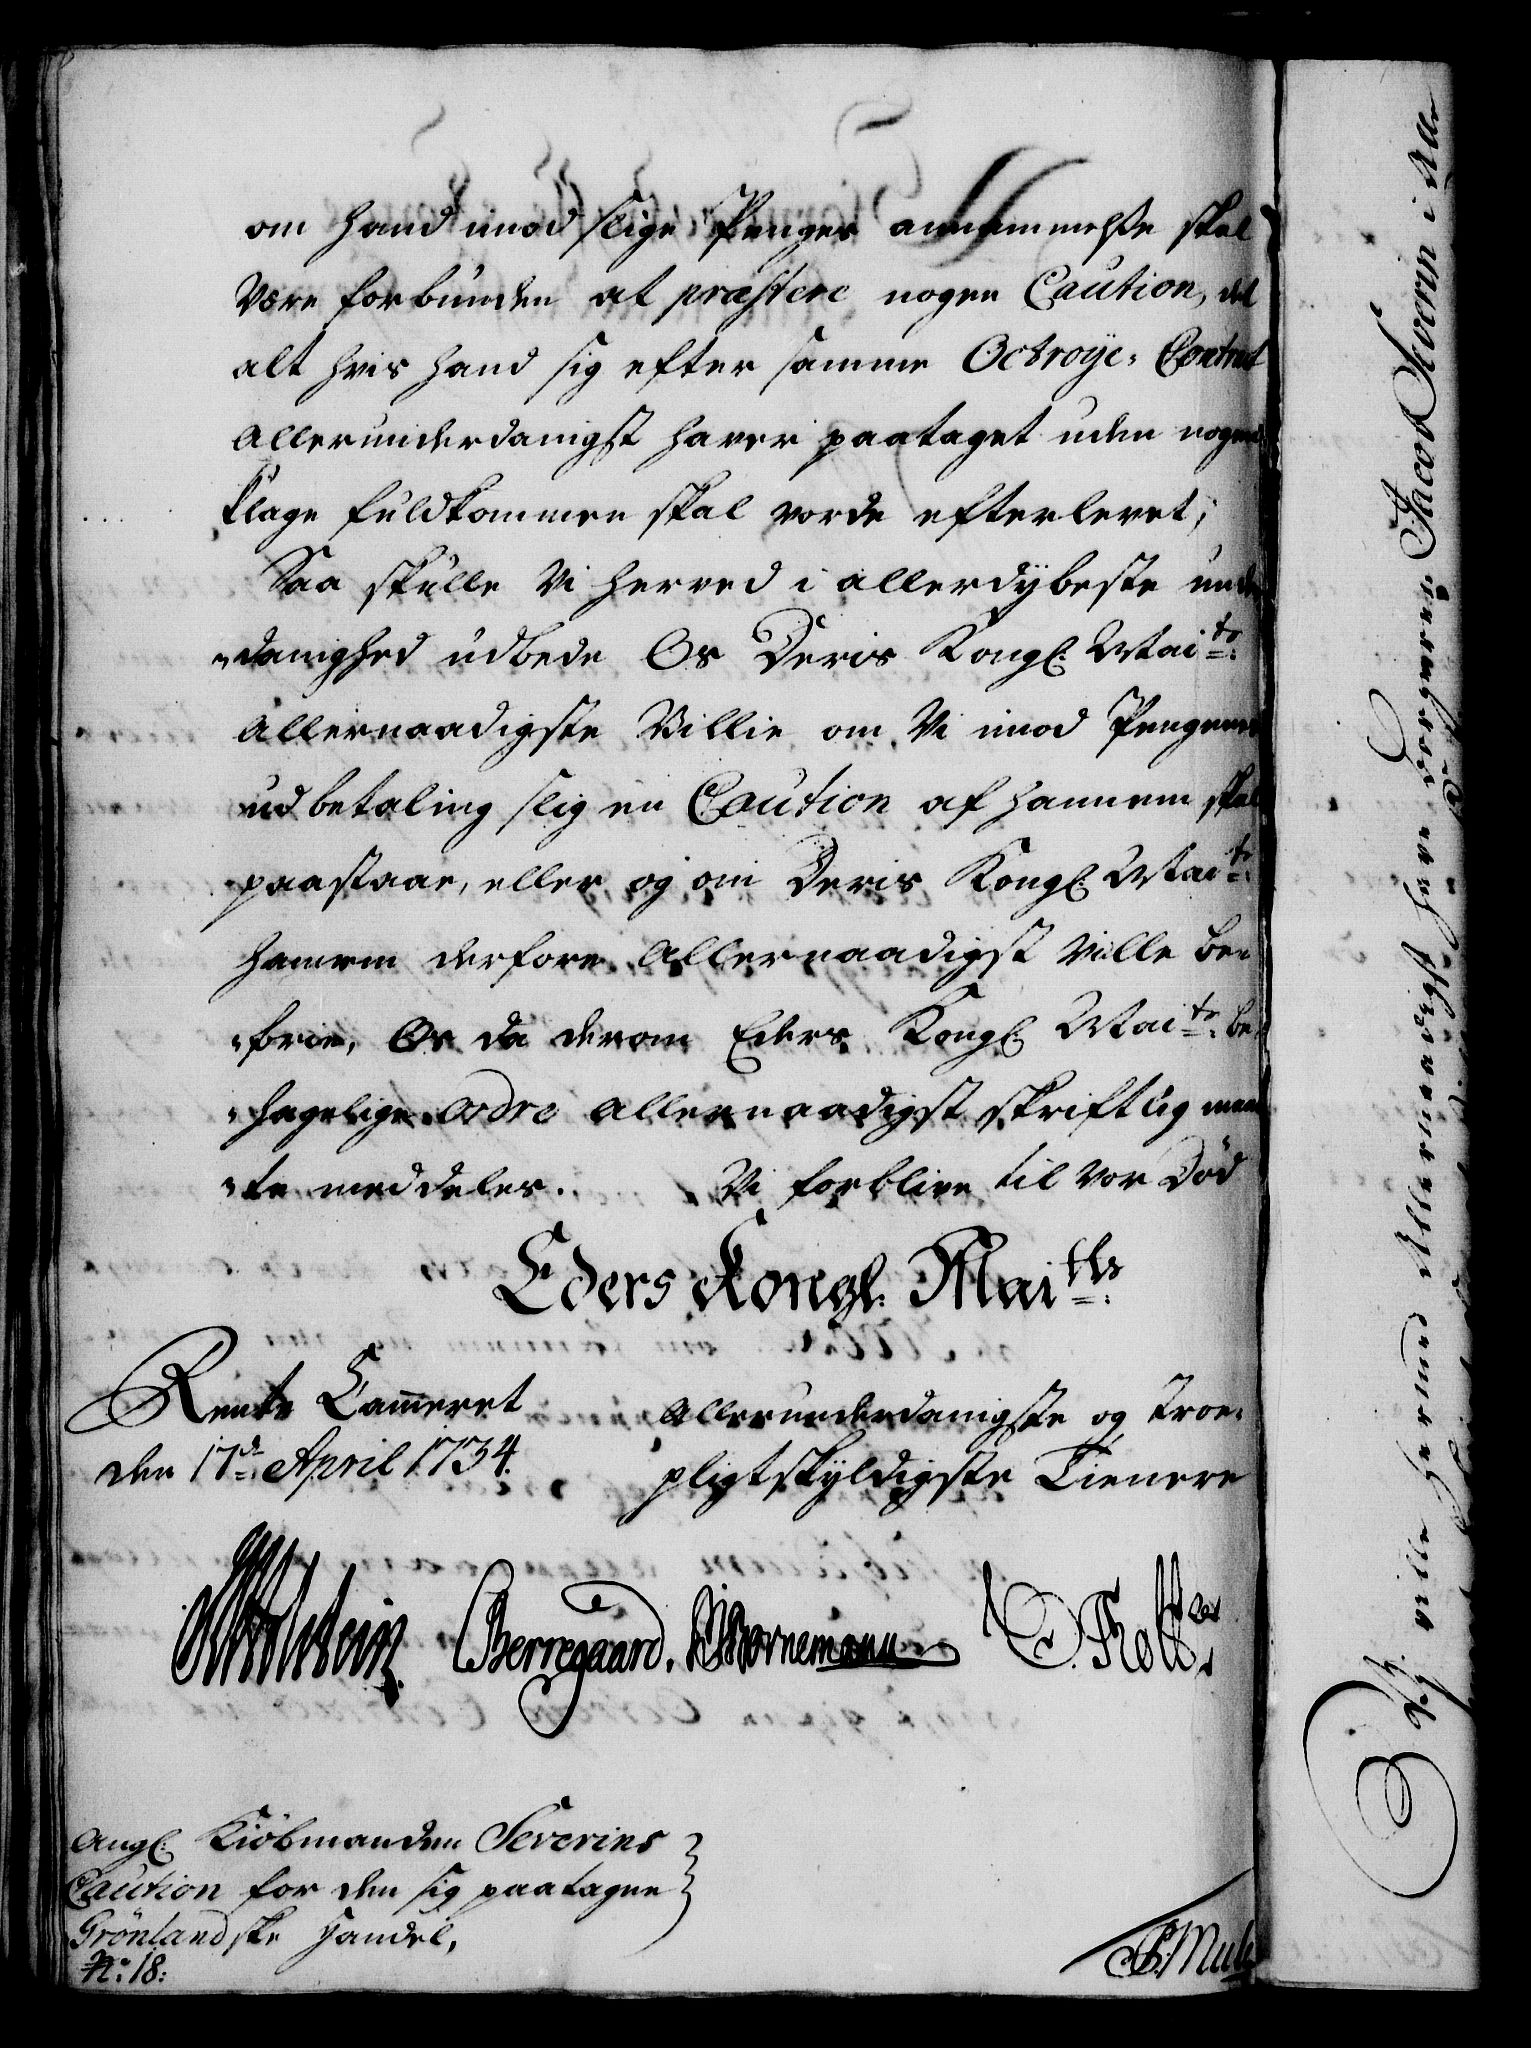 om hand imod slige Penges annammelse skal
være forbunden at præstere nogen Caution, det
alt hvis hand sig efter samme Octroye-Contract
allerunderdanigst haver paataget uden nogen
Klage fuldkommen skal vorde efterlevet;
Saa skulle Vi herved i allerdybeste under
-danighed udbede Os Deris Kongl: Mai:ts
allernaadigste Villie om Vi imod Pengenes
udbetaling slig en Caution af hannem skal
paastaae, eller og om Deris Kongl: Mai:ts
hannem derfore allernaadigst ville be-
-frie, Os da derom Eders Kongl: Mai:ts be-
-hagelige ordre allernaadigst skriftlig maa-
-te meddeles. Vi forblive til vor Död
Eders Kongl: Mai:tts
Rente Cammeret
den 17de April 1734.
allerunderdanigste og troe-
pligtskyldigste Tienere
Holstein Berregaard. Bornemann
Angl: Kiöbmanden Severins
Caution for den sig paatagne
Grönlandske Handel,
No: 18:
Vj ville herved Allernaadigst have Jacob Severin i Alle